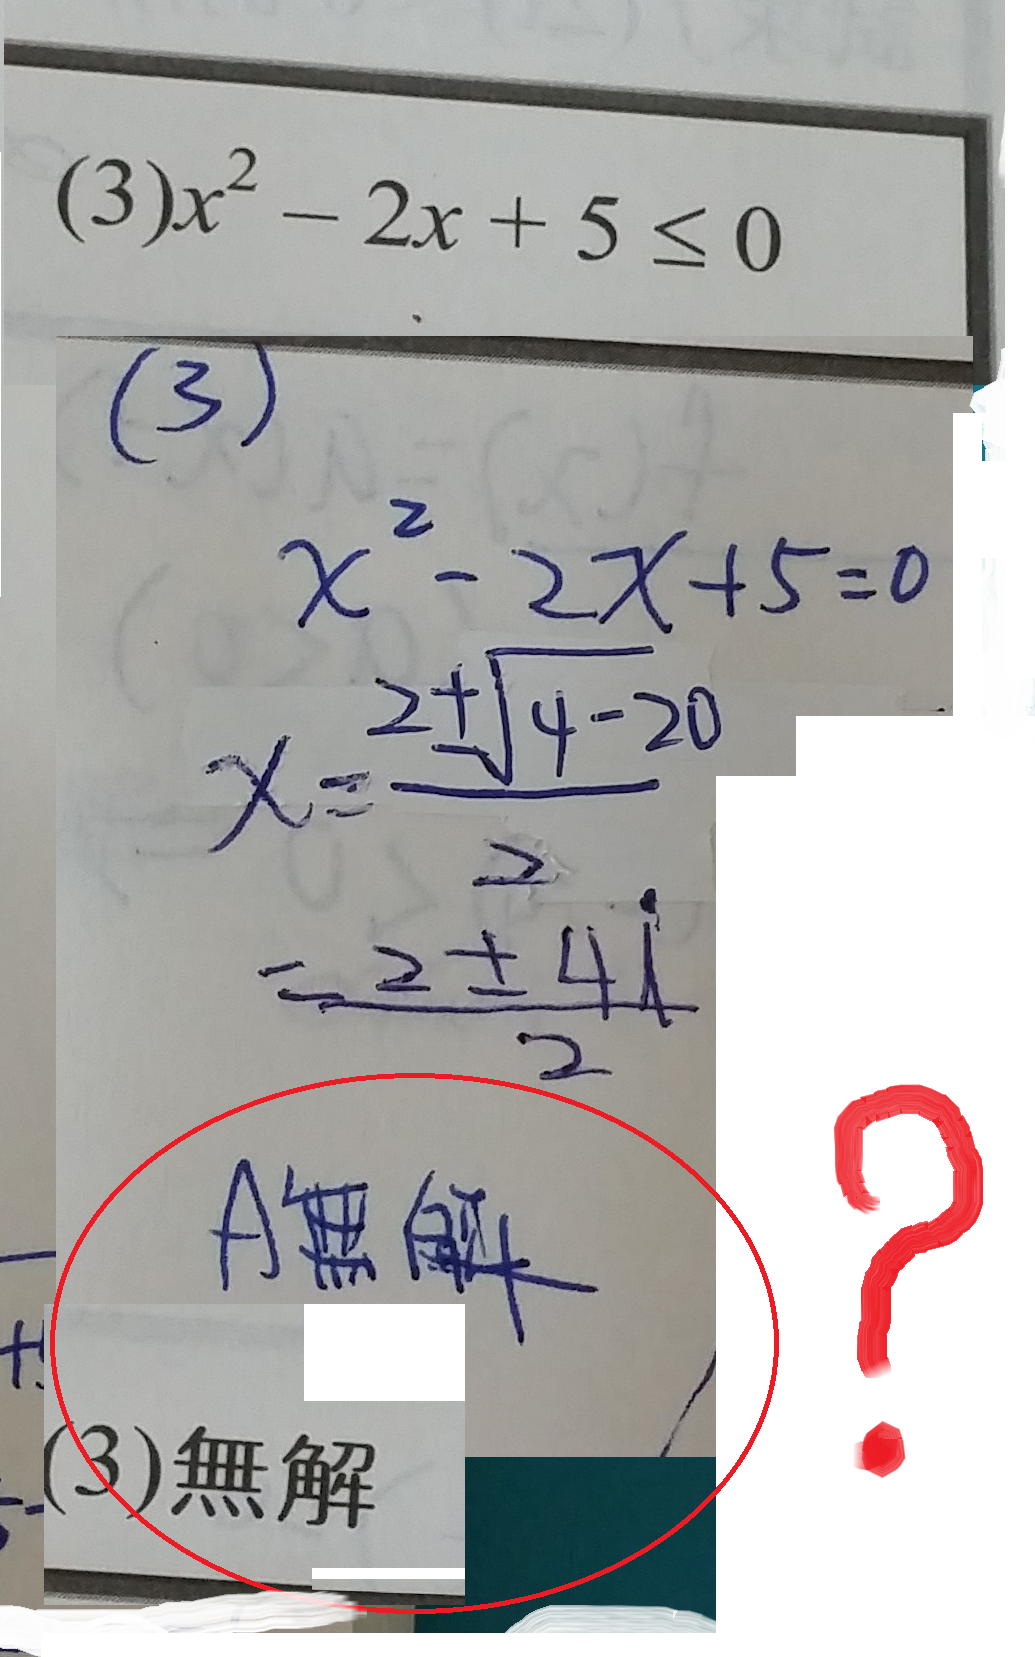 (3)x² − 2x + 5 ≤ 0
(3)
x² - 2x + 5 = 0
x = (2 ± √(4 - 20)) / 2
= (2 ± 4i) / 2
A無解
(3)無解
?